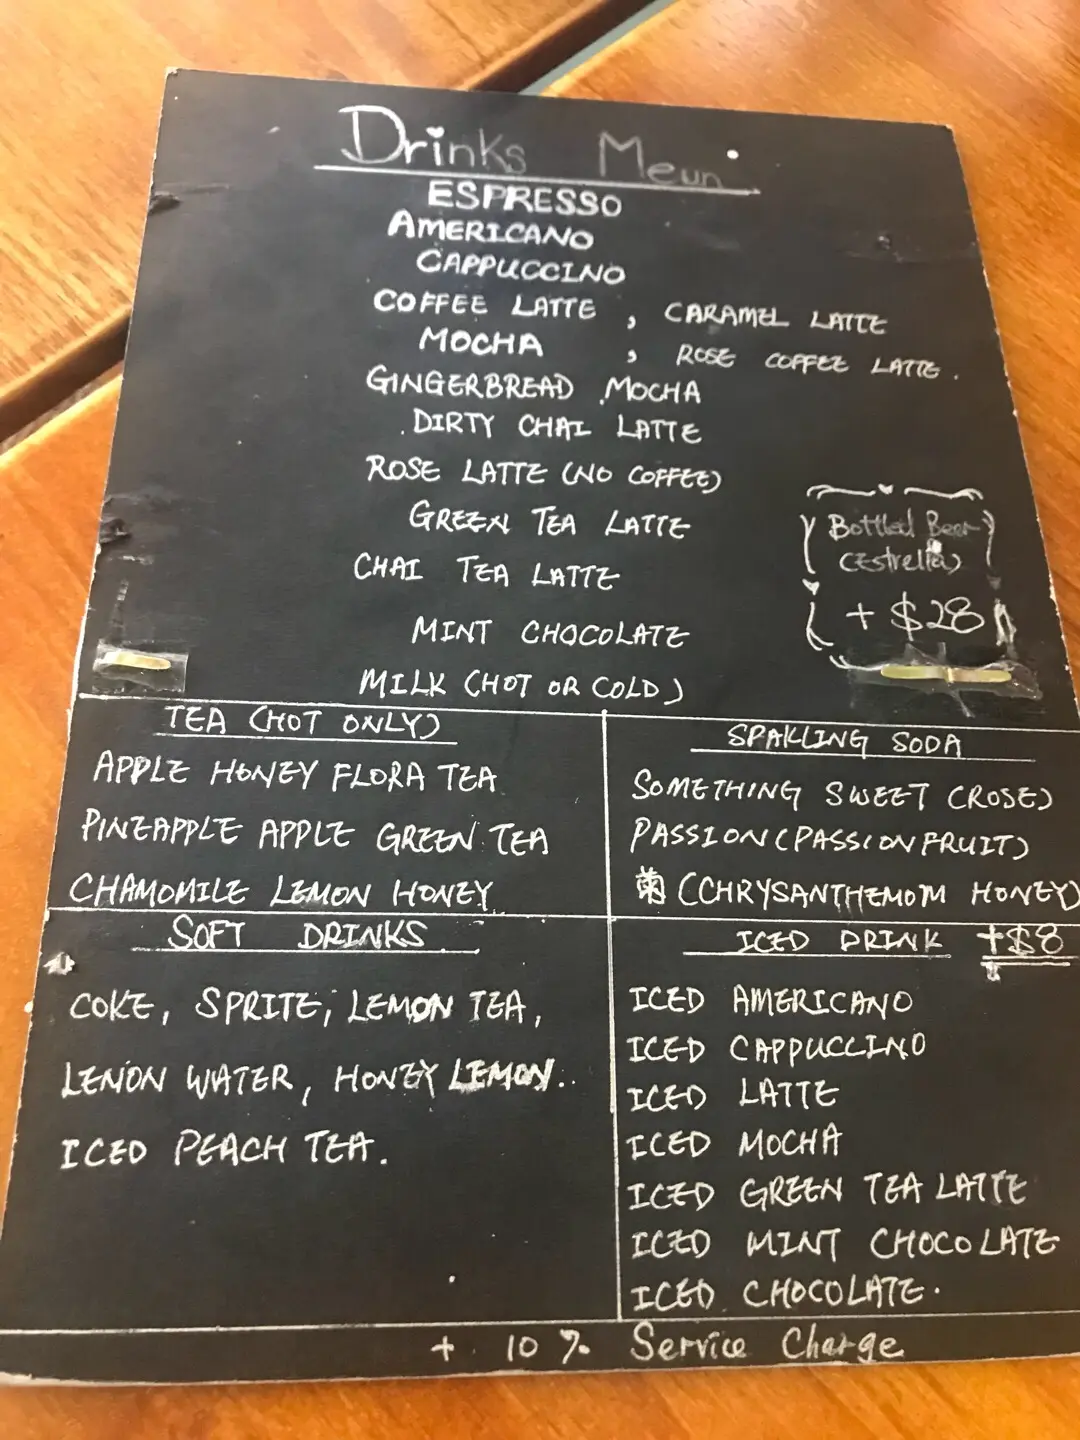 Drinks Meun
ESPRESSO
AMERICANO
CAPPUCCINO
COFFEE LATTE , CARAMEL LATTE
MOCHA , ROSE COFFEE LATTE.
GINGERBREAD MOCHA
DIRTY CHAI LATTE
ROSE LATTE (NO COFFEE)
GREEN TEA LATTE
CHAI TEA LATTE
MINT CHOCOLATE
MILK (HOT OR COLD)
Bottled Beer
(Estrella)
+ $28
TEA (HOT ONLY)
APPLE HONEY FLORA TEA
PINEAPPLE APPLE GREEN TEA
CHAMOMILE LEMON HONEY
SPAKLING SODA
SOMETHING SWEET (ROSE)
PASSION (PASSIONFRUIT)
菊 (CHRYSANTHEMOM HONEY)
SOFT DRINKS
COKE, SPRITE, LEMON TEA,
LEMON WATER, HONEY LEMON..
ICED PEACH TEA.
ICED DRINK +$8
ICED AMERICANO
ICED CAPPUCCINO
ICED LATTE
ICED MOCHA
ICED GREEN TEA LATTE
ICED MINT CHOCOLATE
ICED CHOCOLATE.
+ 10% Service Charge